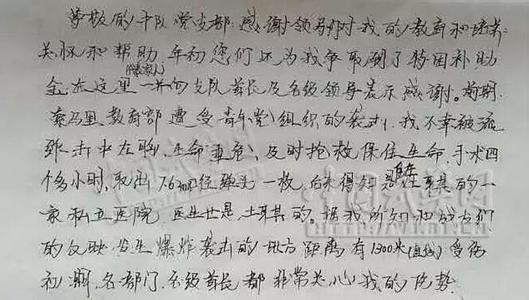 尊敬的支队党支部：感谢领导对我的教育和培养
关怀和帮助。年初您们还为我争取到了特困补助
金，在这里一并向支队首长及各级领导表示感谢。前期
索马里教育部遭受青年党组织的袭击，我不幸被流
弹击中左胸，生命垂危，及时抢救，保住生命，手术四
个多小时，取出7.62口径弹头一枚，后来得知是土耳其的一
家私立医院，医生也是土耳其的。据我所知和战友们
的反映，发生爆炸袭击的地方距离有1300米（直线）受伤
初期，各部门、各级首长都非常关心我的伤势